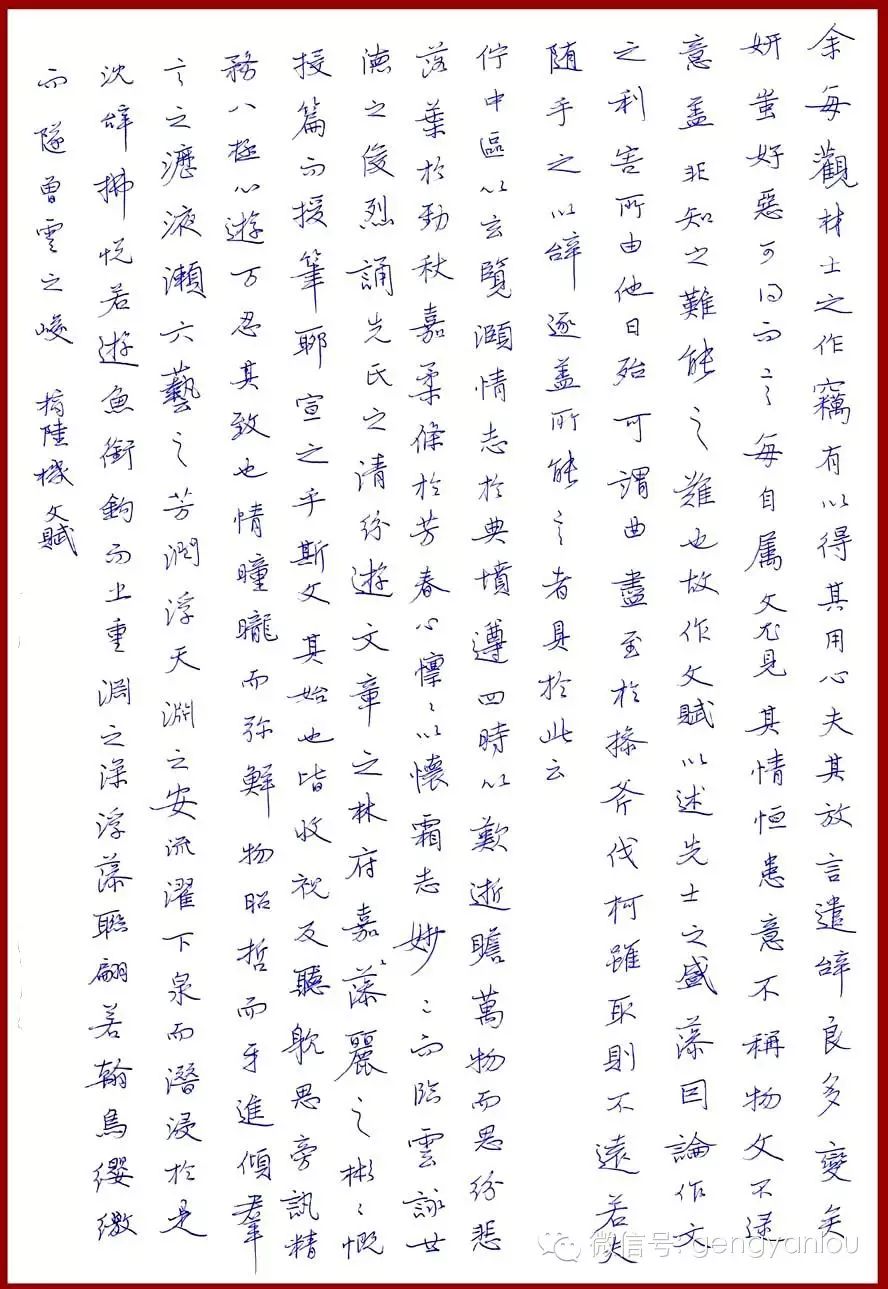 余每觀材士之作竊有以得其用心夫其放言遣辭良多變矣
妍蚩好惡可得而言每自属文尤見其情恒患意不稱物文不逮
意盖非知之難能之難也故作文賦以述先士之盛藻因論作文
之利害所由他日殆可謂曲盡至於操斧伐柯雖取則不遠若夫
随手之以辭逐盖所能言者具於此云
佇中區以玄覽頤情志於典墳遵四時以歎逝瞻萬物而思紛悲
落葉於勁秋嘉柔條於芳春心懍〻以懷霜志妙〻而臨雲詠世
德之俊烈誦先氏之清紛遊文章之林府嘉藻麗之彬〻慨
授篇而援筆聊宣之乎斯文其始也皆收視反聽躭思旁訊精
務八極心遊万忍其致也情曈曨而弥鮮物昭哲而牙進傾羣
言之瀝液濑六藝之芳潤浮天淵之安流濯下泉而潛浸於是
沈辞拂悦若遊魚銜鉤而出重淵之深浮藻聯翩若翰鳥纓缴
而隧曾雲之峻 摘陸機文賦
微信号: gengyanlou